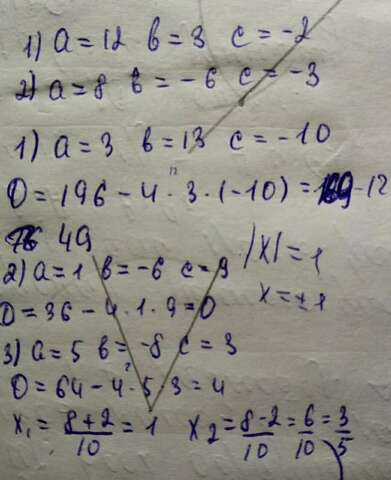 1) a = 12 b = 3 c = -2
2) a = 8 b = -6 c = -3
1) a = 3 b = 13 c = -10
D = 196 - 4 · 3 · (-10) = 169 - 12
49
2) a = 1 b = -6 c = 9
|x| = 1
D = 36 - 4 · 1 · 9 = 0
x = ±1
3) a = 5 b = -8 c = 3
D = 64 - 4 · 5 · 3 = 4
x₁ = (8+2)/10 = 1 x₂ = (8-2)/10 = 6/10 = 3/5